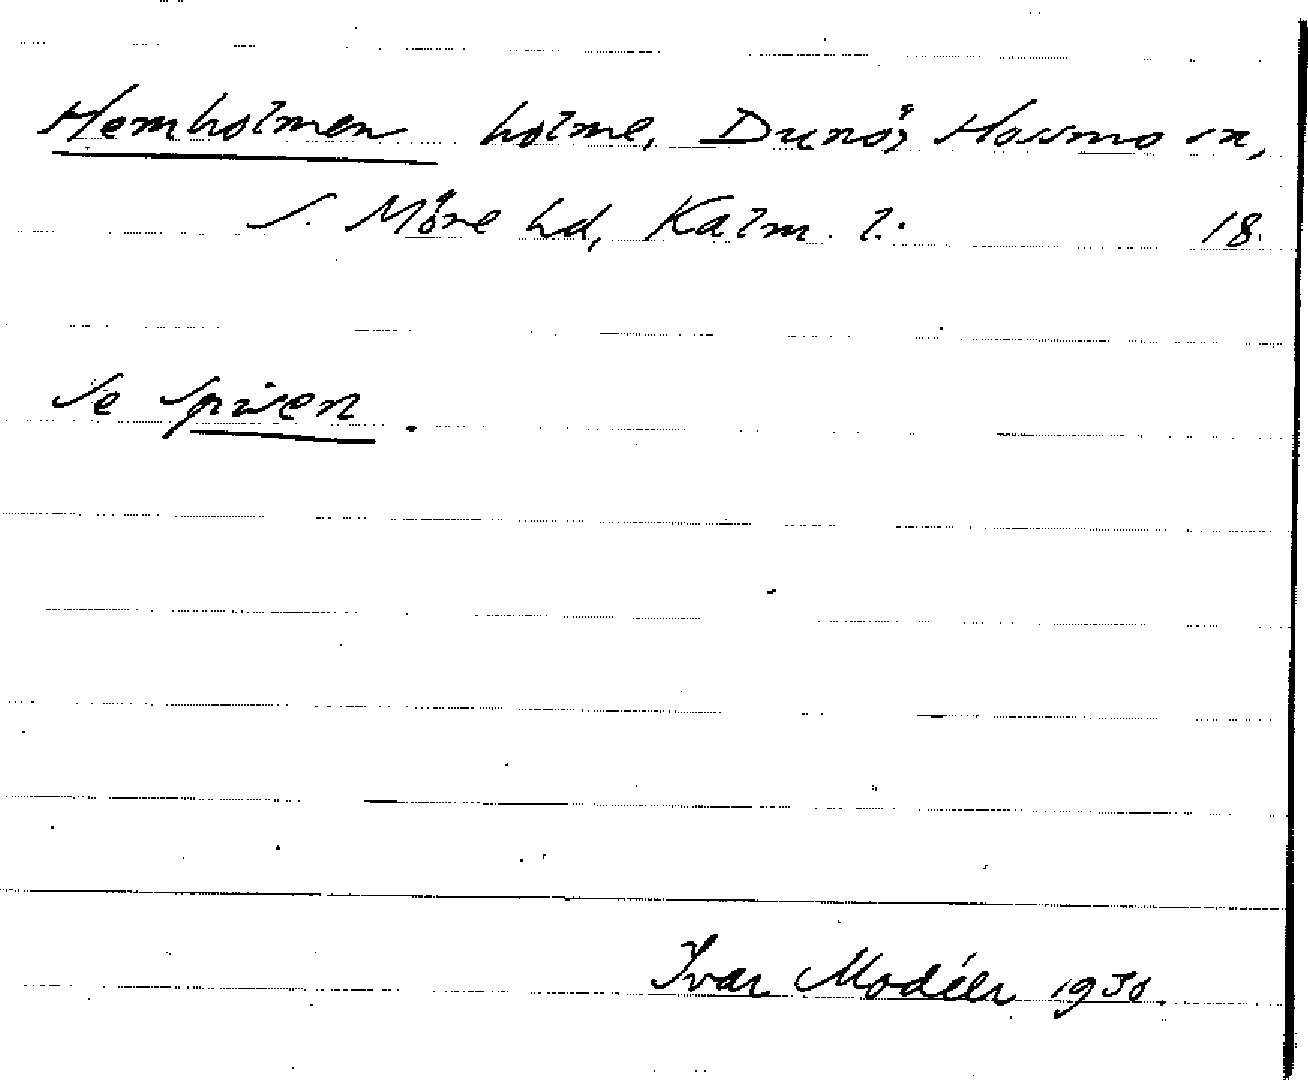 Hemholmen holme, Dunö, Hossmo sn,
S. Möre hd, Kalm. l. 18.
Se Spisen.
Ivar Modéer 1930.